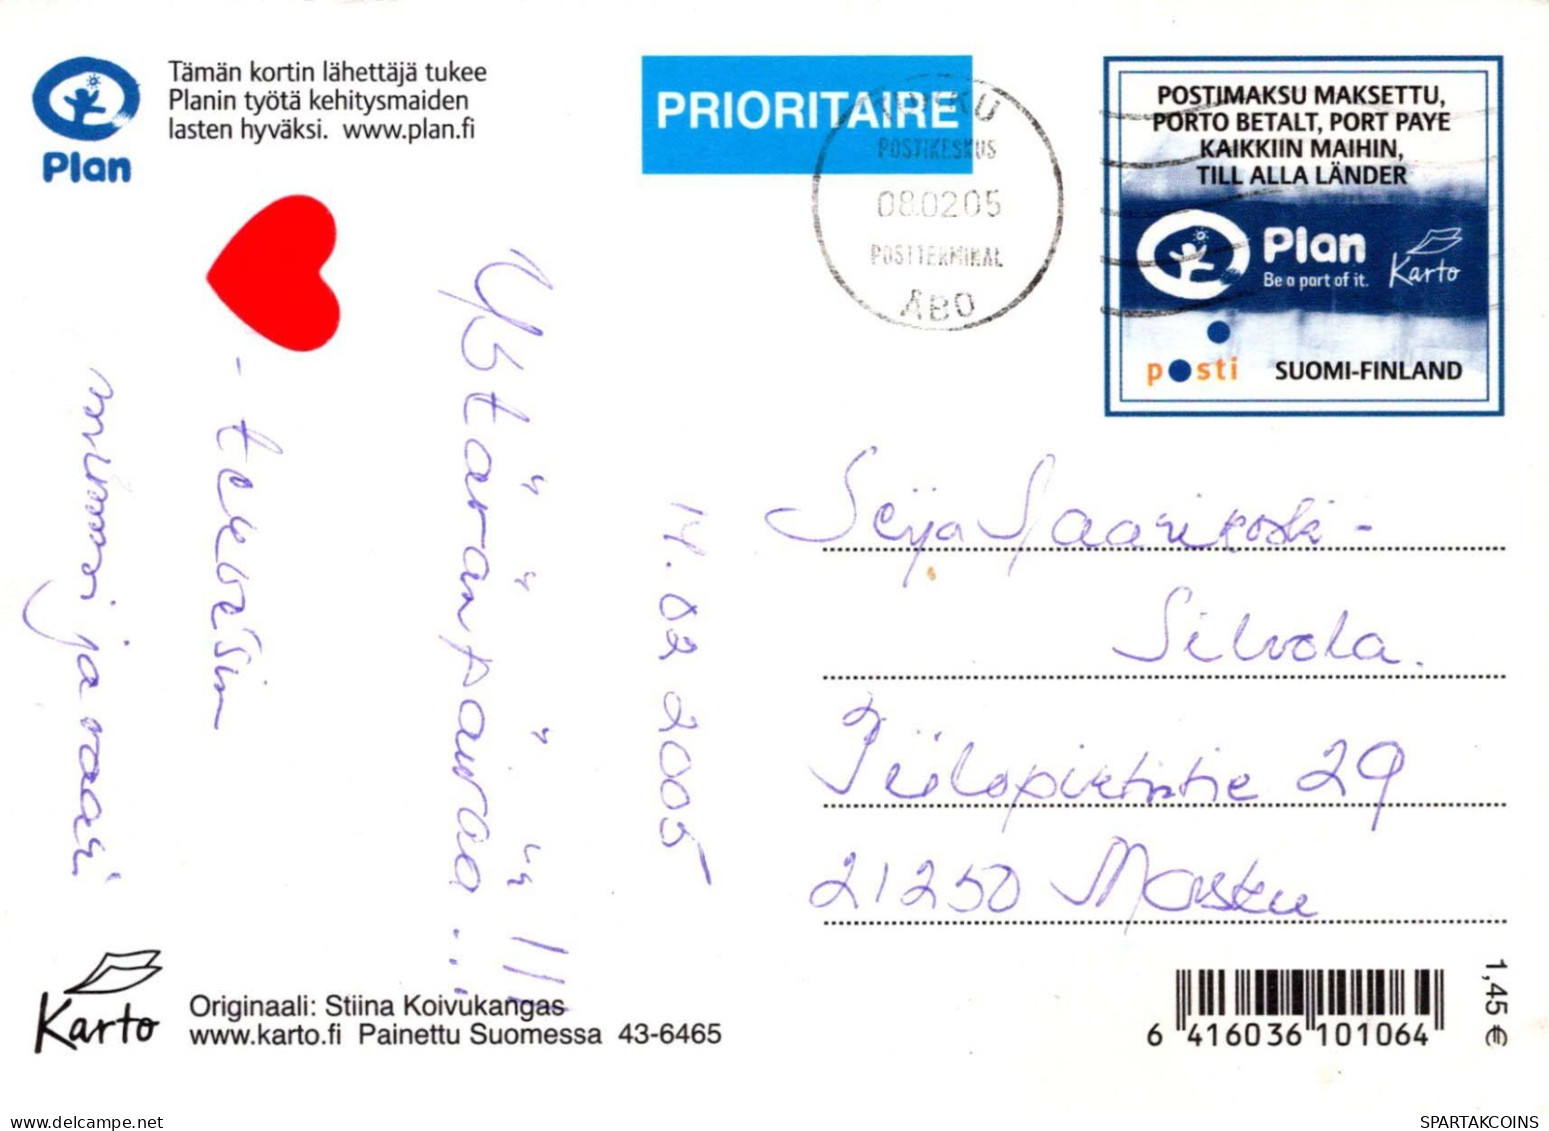 Plan
Tämän kortin lähettäjä tukee
Planin työtä kehitysmaiden
lasten hyväksi. www.plan.fi
PRIORITAIRE
TURKU
POSTIKESKUS
08.02.05
POSTTERMINAL
ÅBO
POSTIMAKSU MAKSETTU,
PORTO BETALT, PORT PAYE
KAIKKIIN MAIHIN,
TILL ALLA LÄNDER
Plan
Be a part of it.
Karto
posti
SUOMI-FINLAND
14.02 2005
Ystävänpäivää...!!!
- terveisin
mummi ja vaari
Seija Saarikoski-
Silvola.
29
21250 Masku
Karto
Originaali: Stiina Koivukangas
www.karto.fi Painettu Suomessa 43-6465
6 416036 101064
1,45 €
delcampe.net
SPARTAKCOINS